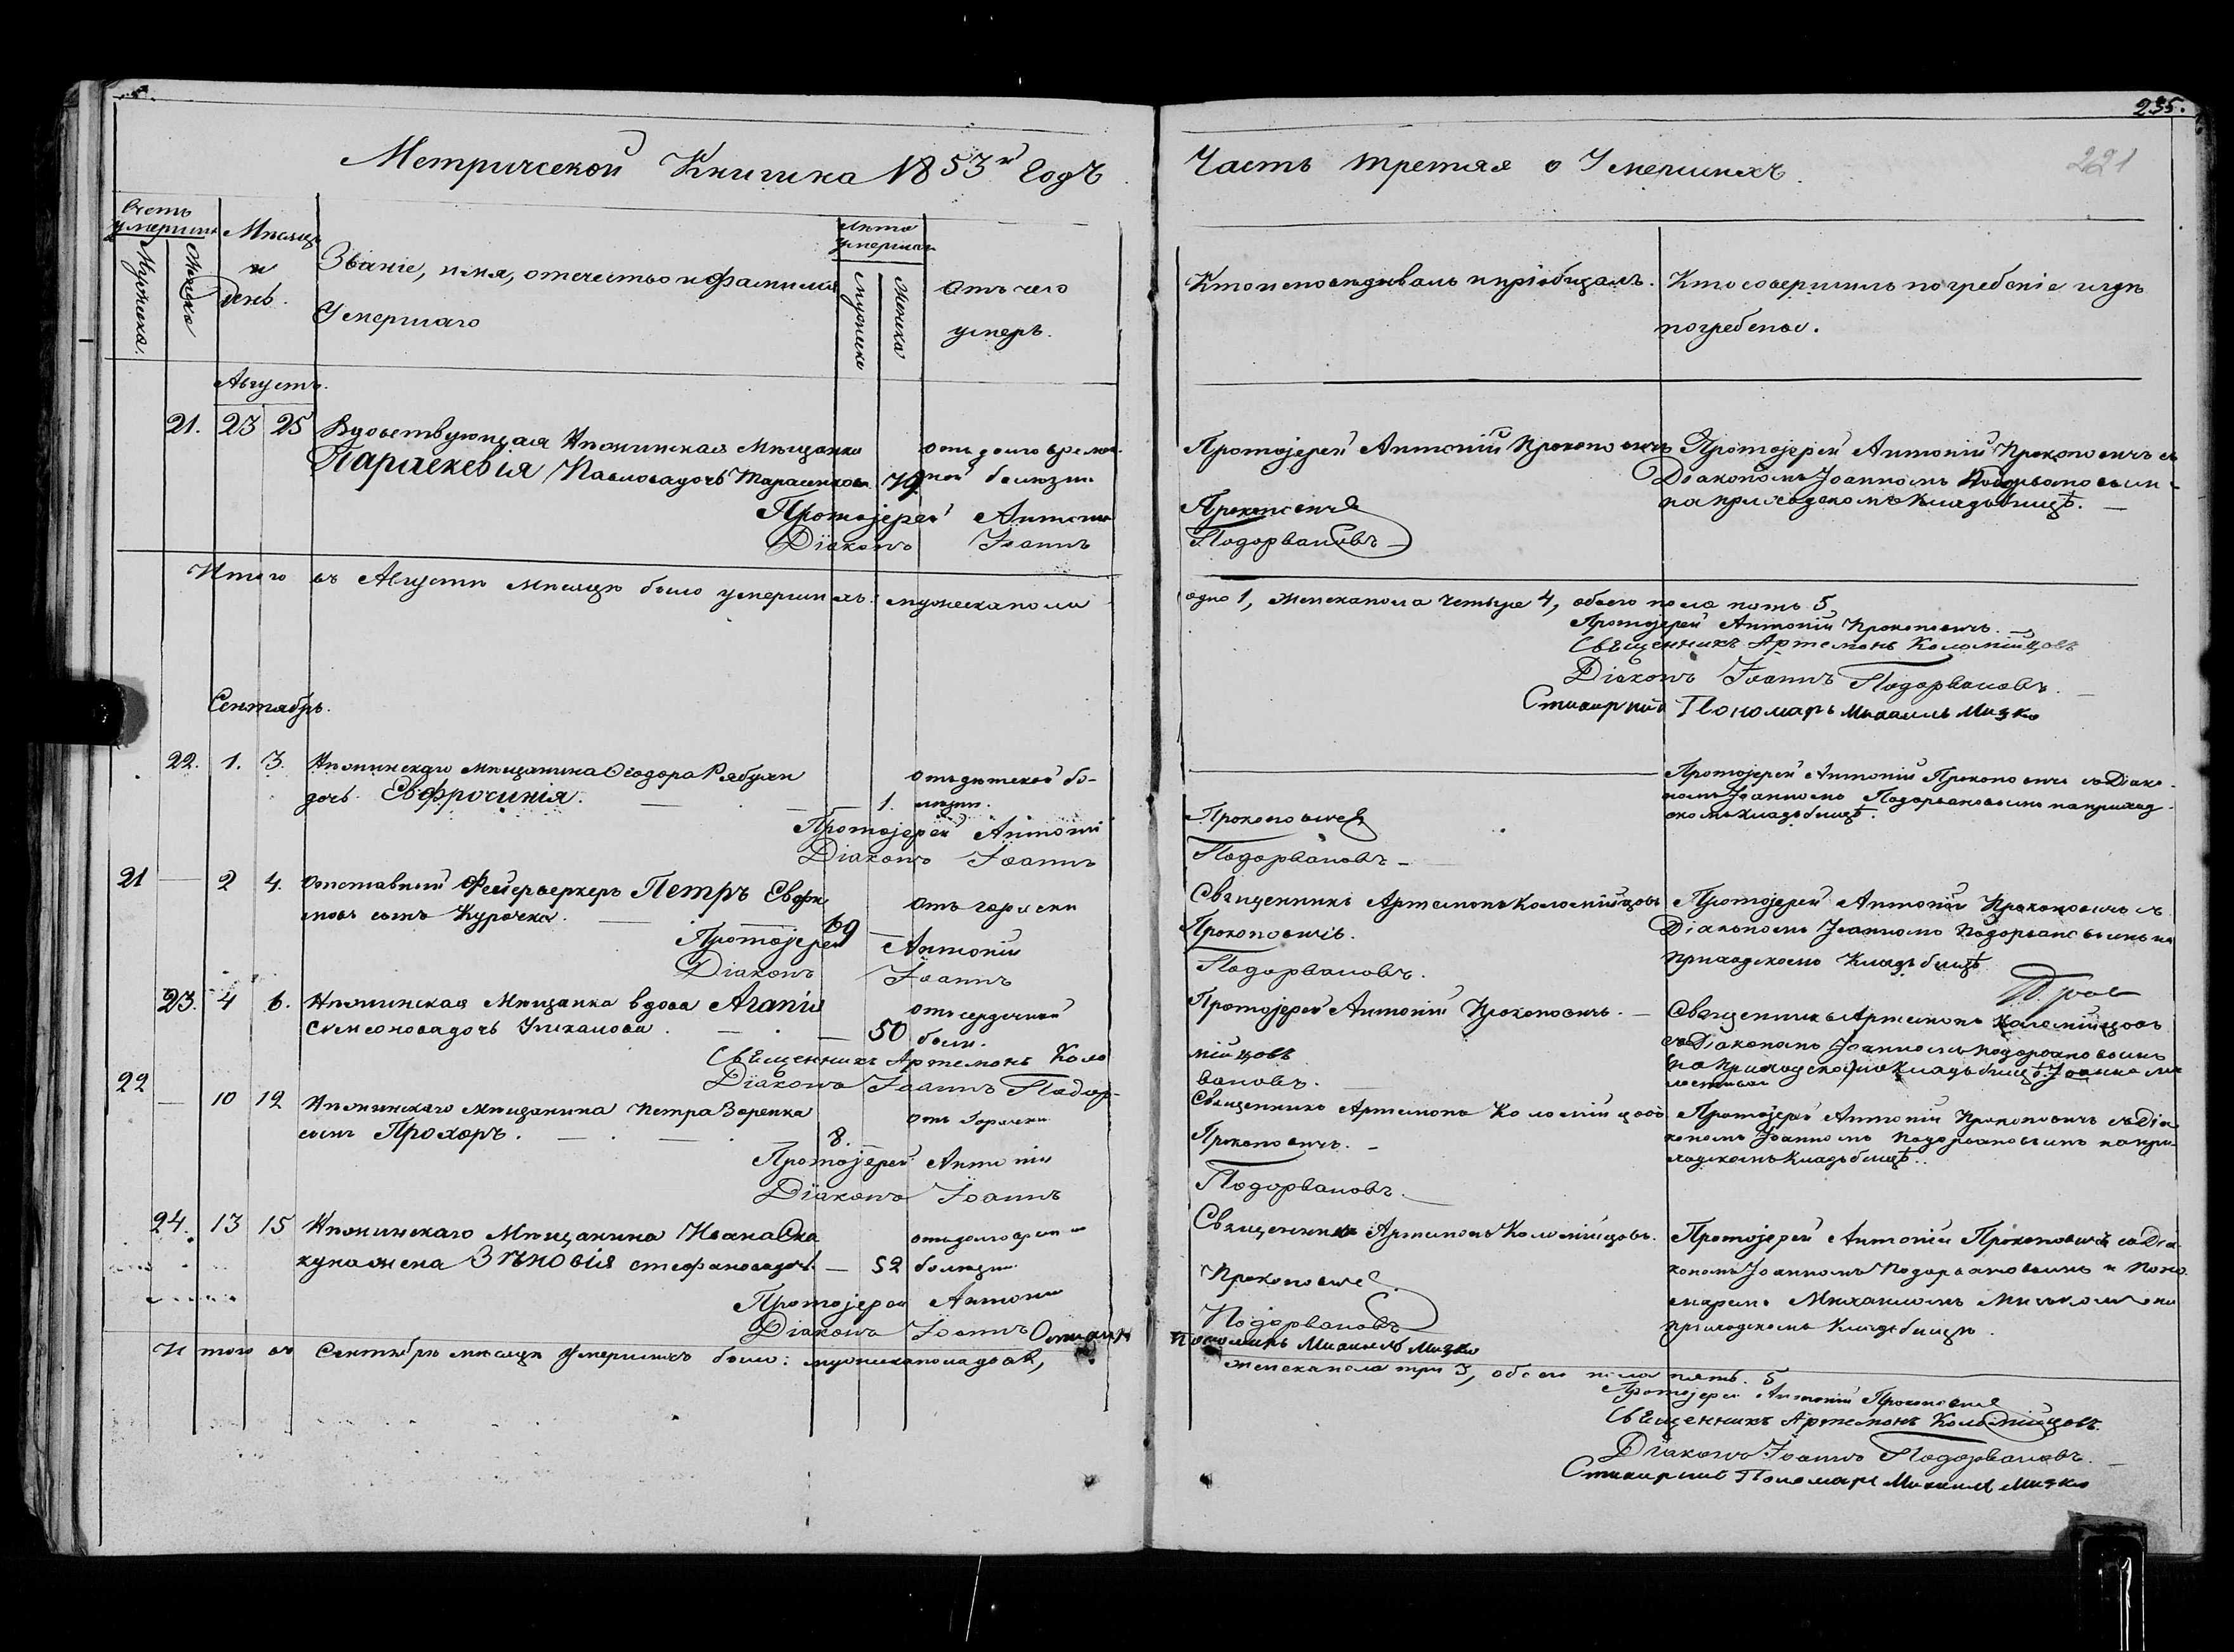 235.
221
Метрической Книги на 1853й Годъ
Часть третяя о Умершихъ.
Счетъ умершихъ
Мужеска.
Женска
Мѣсяцъ и день.
Званіе, имя, отечество и фамилія
Умершаго
Лѣта умершаго
мужеска
женска
Отъ чего
умеръ.
Кто исповѣдывалъ и пріобщалъ.
Кто совершилъ погребеніе и гдѣ
погребены.
Августъ.
21. 23 25 Вдовствующая мѣщанка
Параскевія Павловадочь Тарасенкова 79
отъ долговремен-
ной болѣзни
Протоіерей Антоній
Діаконъ Іоаннъ
Протоіерей Антоній Прокоповичъ
Прокоповичъ
Подорвановъ
Протоіерей Антоній Прокоповичъ съ
Діакономъ Іоанномъ Подорвановымъ
на приходскомъ кладбищѣ.
Итого въ Августѣ мѣсяцѣ было умершихъ: мужеска пола
одно 1, женска пола четыре 4, обоего пола пять 5
Протоіерей Антоній Прокоповичъ.
Священникъ Артемонъ Коломійцовъ
Діаконъ Іоаннъ Подорвановъ.
Стихарній Пономарь Михаилъ Мизко
Сентябрь.
22. 1. 3. мѣщанина Ѳеодора Рябухи
дочь Евфросинія. 1.
отъ дѣтской бо-
лѣзни.
Протоіерей Антоній
Діаконъ Іоаннъ
Прокоповичъ
Подорвановъ
Протоіерей Антоній Прокоповичъ съ Діако-
номъ Іоанномъ Подорвановымъ на приход-
скомъ кладбищѣ.
21 — 2 4. Отставной Фейерверкеръ Петръ
сынъ Курочка. 69
отъ горячки
Протоіерей Антоній
Діаконъ Іоаннъ
Священникъ Артемонъ Коломійцовъ
Прокоповичъ.
Подорвановъ.
Протоіерей Антоній Прокоповичъ съ
Діакономъ Іоанномъ Подорвановымъ на
приходскомъ кладбищѣ
23. 4 6. мѣщанка вдова Агапія
Симеоновадочь 50
отъ сердечной
болѣ.
Священникъ Артемонъ Коло
Діаконъ Іоаннъ Подор-
Протоіерей Антоній Прокоповичъ.
мійцовъ
вановъ.
Священникъ Артемонъ Коломійцовъ
съ Діакономъ Іоанномъ Подорвановымъ
на приходскомъ кладбищѣ
22 — 10 12 мѣщанина Петра Зоренка
сынъ Прохоръ. 8.
отъ горячки
Протоіерей Антоній
Діаконъ Іоаннъ
Священникъ Артемонъ Коломійцовъ
Прокоповичъ.
Подорвановъ.
Протоіерей Антоній Прокоповичъ съ Діа
кономъ Іоанномъ Подорвановымъ на при-
ходскомъ кладбищѣ.
24. 13 15 Мѣщанина Ивана
жена Зѣновія стефановадочь — 52
отъ долговремен
болѣзни
Протоіерей Антоній
Діаконъ Іоаннъ
Священникъ Артемонъ Коломійцовъ.
Прокоповичъ
Подорвановъ
Пономарь Михаилъ Мизко
Протоіерей Антоній Прокоповичъ съ Діа-
кономъ Іоанномъ Подорвановымъ и Поно-
маремъ Михаиломъ на
приходскомъ кладбищѣ.
Итого въ Сентябрѣ мѣсяцѣ умершихъ было: мужеска пола два,
женска пола три 3, обоего пола пять. 5
Протоіерей Антоній Прокоповичъ
Священникъ Артемонъ Коломійцовъ.
Діаконъ Іоаннъ Подорвановъ.
Стихарній Пономарь Михаилъ Мизко